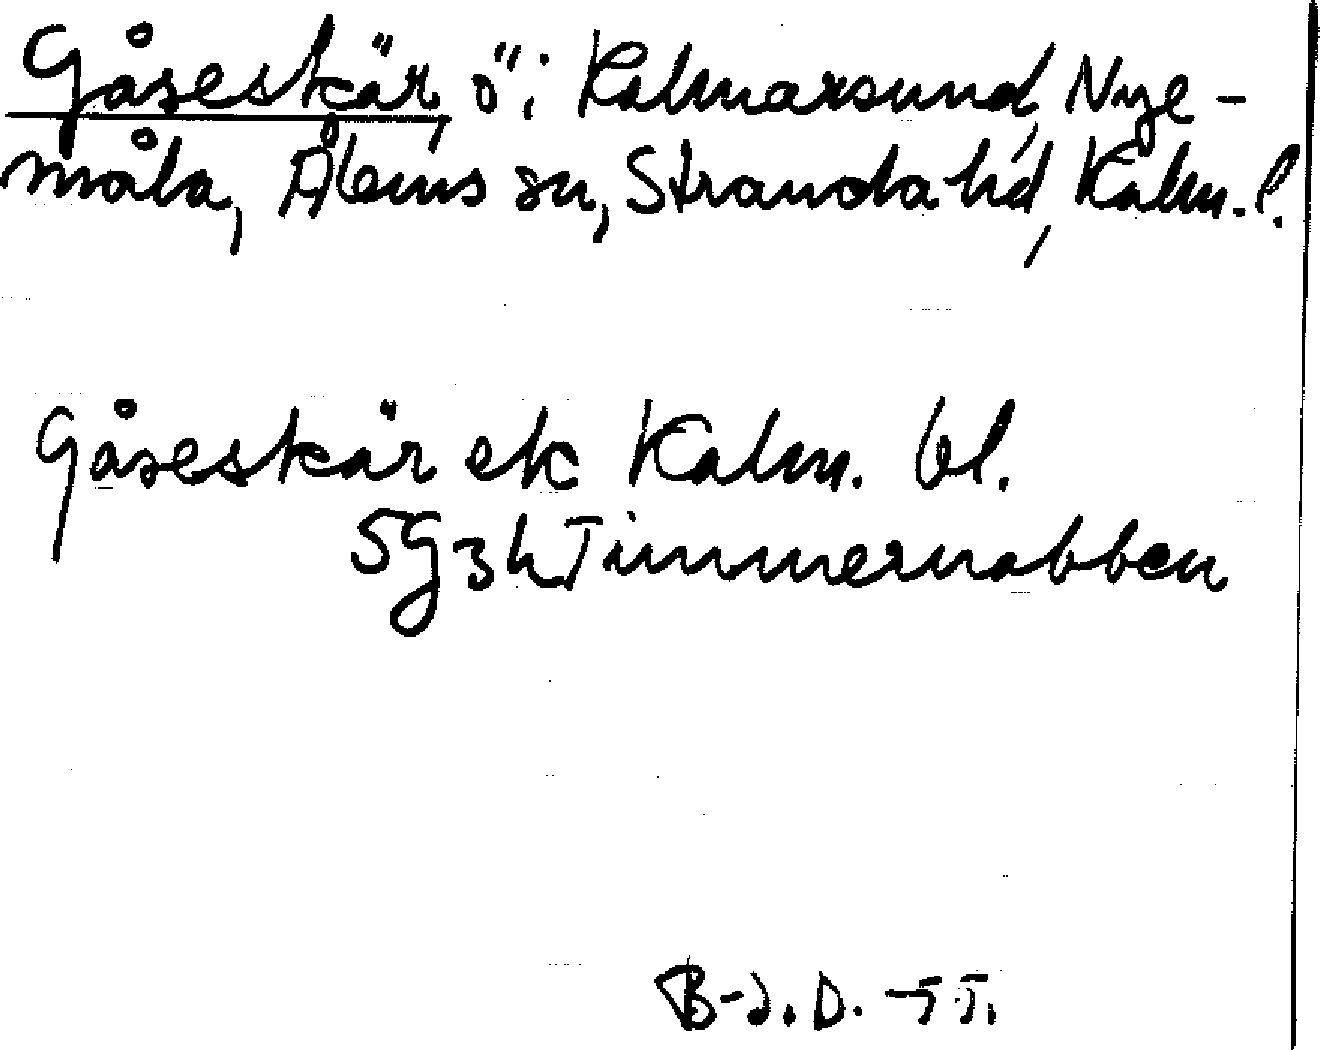 Gåseskär, ö i Kalmarsund, Nye-
måla, Ålems sn, Stranda hd, Kalm. l.
Gåseskär ek Kalm. bl.
5G3h Timmernabben
B-J. D. -77.